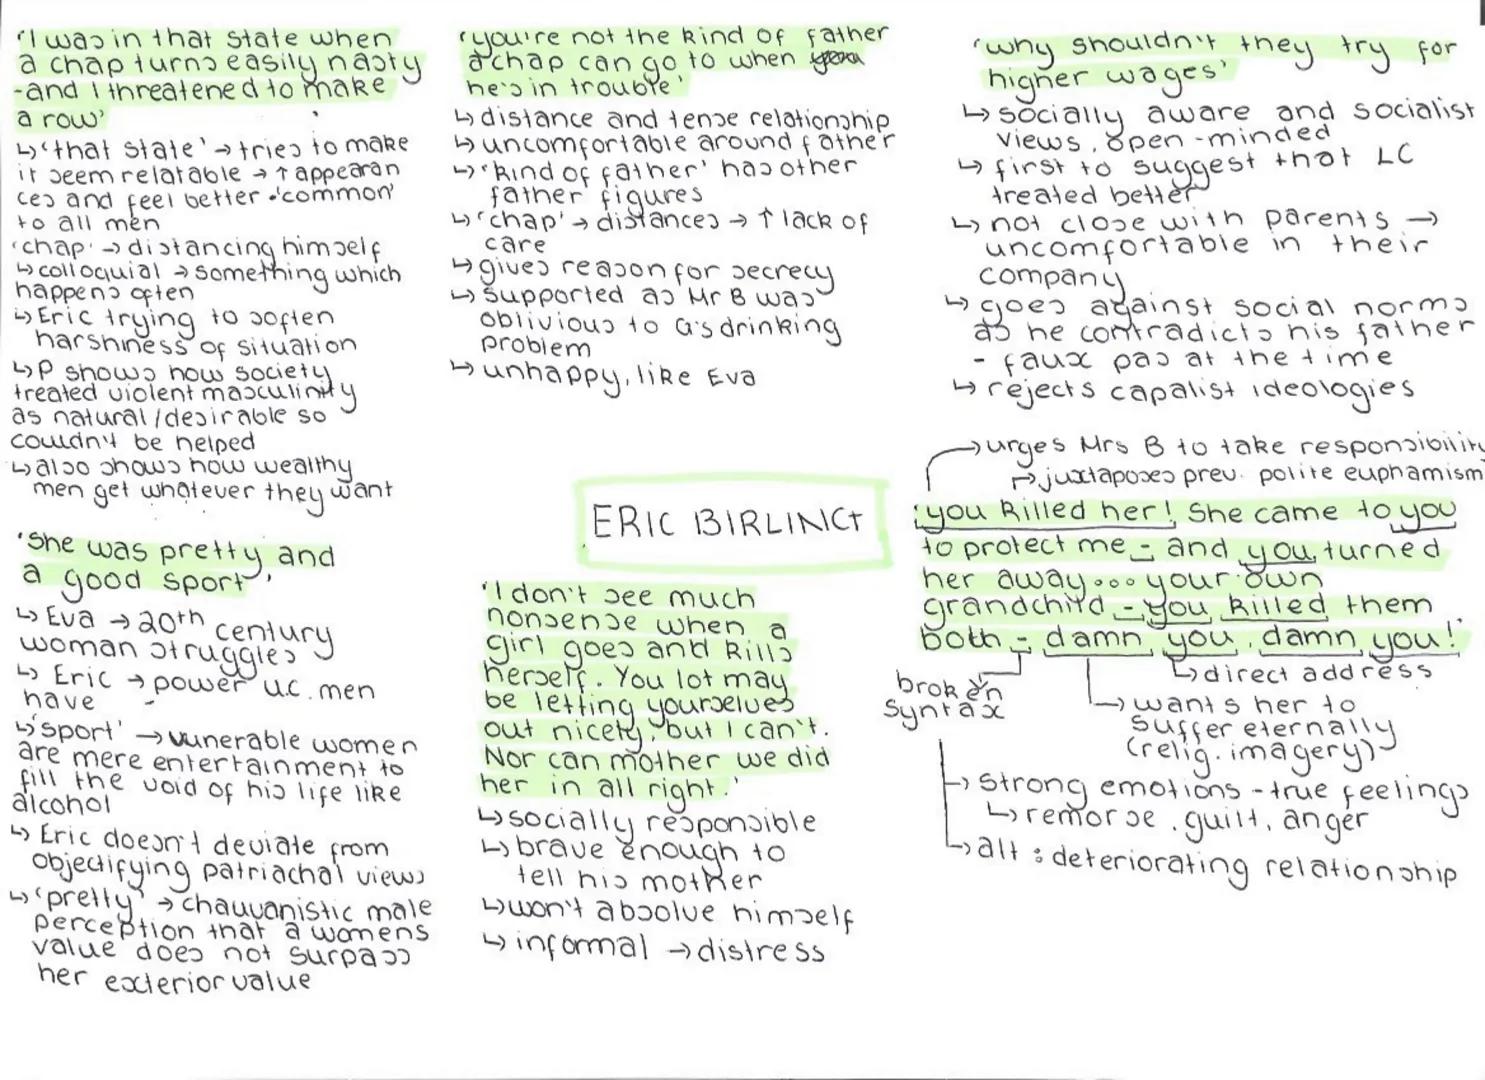 'I was in that state when
a chap turns easily nasty
-and I threatened to make
a row'
↳ 'that state' → tries to make
it seem relatable → ↑ appearan
ces and feel better • 'common'
to all men
'chap' → distancing himself
↳ colloquial → something which
happens often
↳ Eric trying to soften
harshness of situation
↳ P shows how society
treated violent masculinity
as natural/desirable so
couldn't be helped
↳ also shows how wealthy
men get whatever they want
'She was pretty and
a good sport'
↳ Eva → 20th century
woman struggles
↳ Eric → power u.c. men
have
↳ 'sport' → vunerable women
are mere entertainment to
fill the void of his life like
alcohol
↳ Eric doesn't deviate from
objectifying patriachal views
↳ 'pretty' → chauvanistic male
perception that a womens
value does not surpass
her exterior value
'you're not the kind of father
a chap can go to when
he's in trouble'
↳ distance and tense relationship
↳ uncomfortable around father
↳ 'kind of father' has other
father figures
↳ 'chap' → distances → ↑ lack of
care
↳ gives reason for secrecy
↳ supported as Mr B was
oblivious to G's drinking
problem
↳ unhappy, like Eva
ERIC BIRLING
'I don't see much
nonsense when a
girl goes and kills
herself. You lot may
be letting yourselves
out nicely, but I can't.
Nor can mother we did
her in all right.'
↳ socially responsible
↳ brave enough to
tell his mother
↳ won't absolve himself
↳ informal → distress
'why shouldn't they try for
higher wages'
↳ socially aware and socialist
views, open-minded
↳ first to suggest that LC
treated better
↳ not close with parents →
uncomfortable in their
company
↳ goes against social norms
as he contradicts his father
- faux pas at the time
↳ rejects capalist ideologies
→ urges Mrs B to take responsibility
↱ juxtaposes prev. polite euphamism
'you killed her! She came to you
to protect me - and you turned
her away... your own
grandchild - you killed them
both - damn you, damn you!'
broken
syntax
↳ direct address
→ wants her to
suffer eternally
(relig. imagery)
→ strong emotions - true feelings
↳ remorse, guilt, anger
→ alt : deteriorating relationship